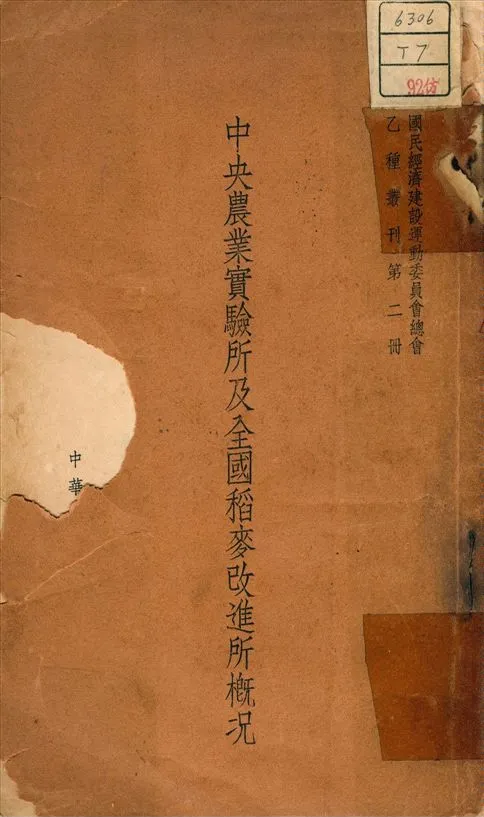 6306
T7
92估
國民經濟建設運動委員會總會
乙種叢刊第二冊
中央農業實驗所及全國稻麥改進所概况
中華